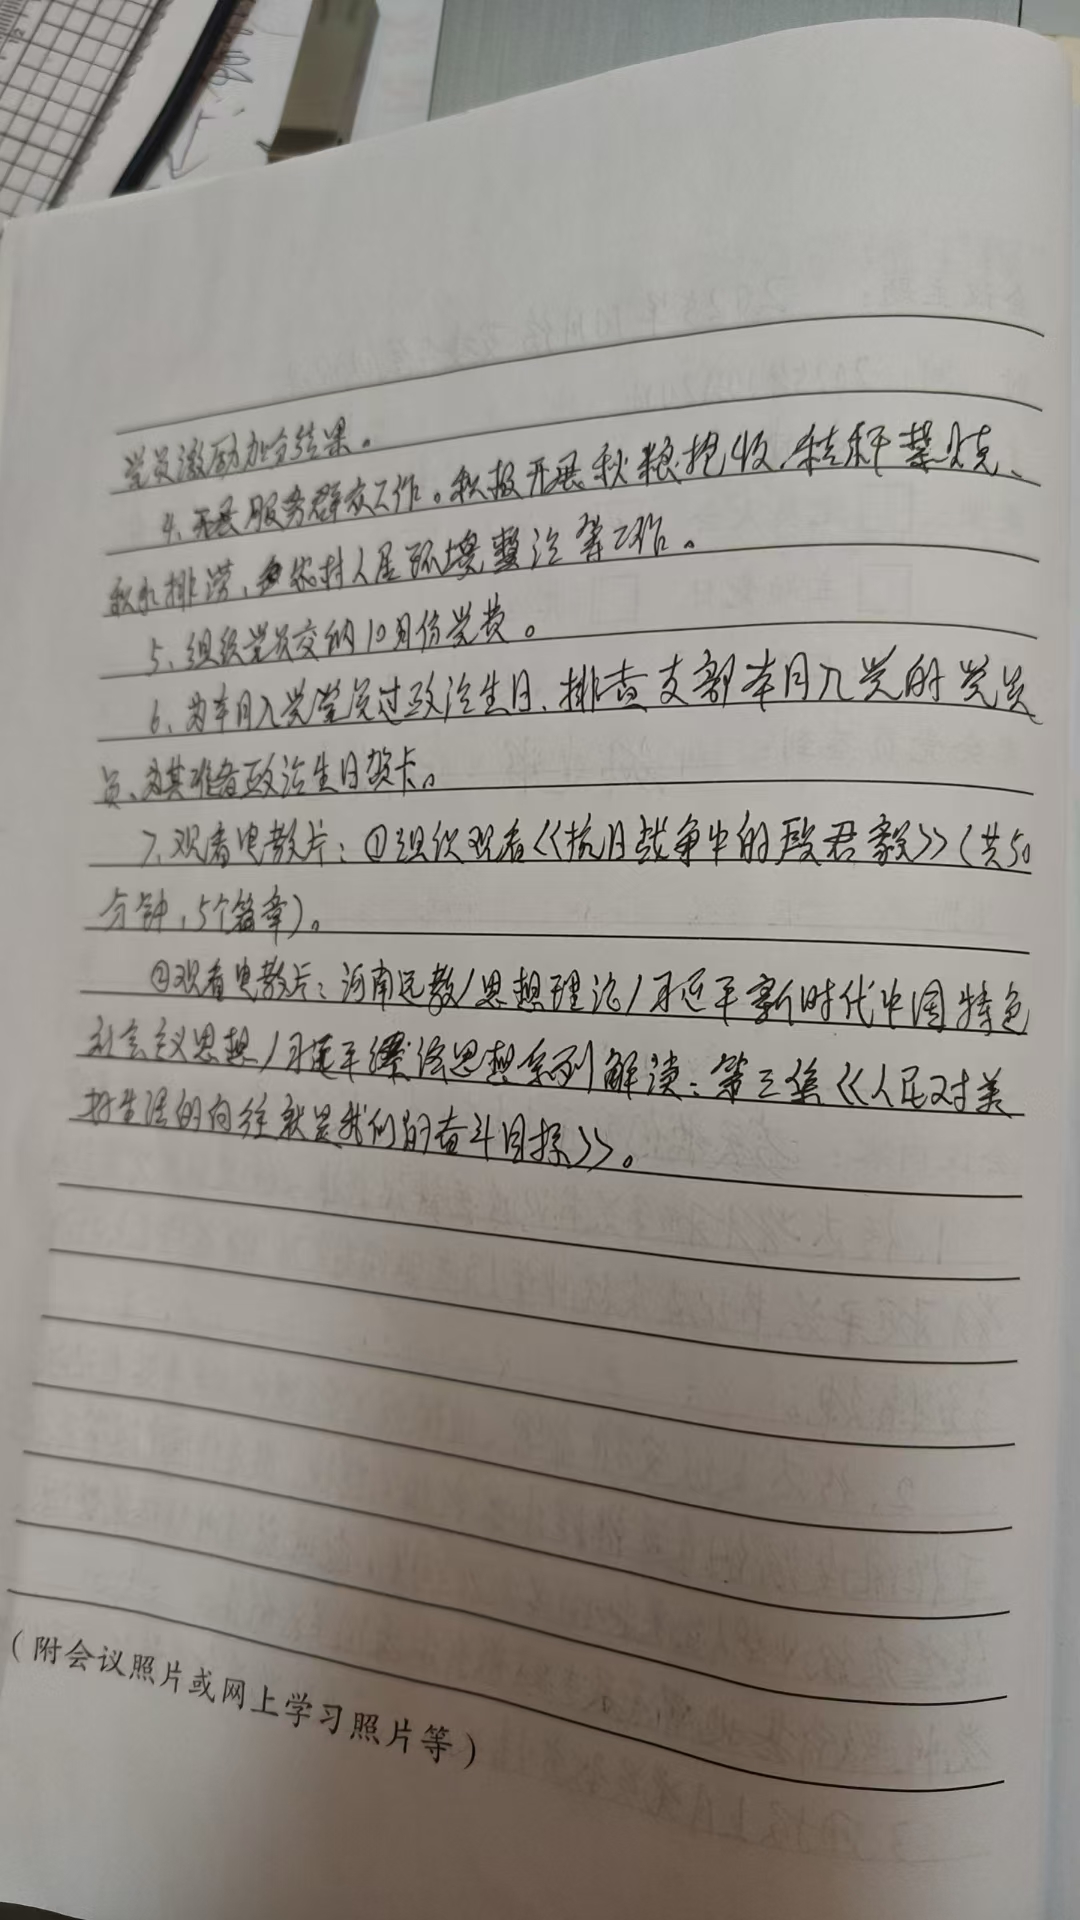 党员激励加分结果。
4、开展服务群众工作。积极开展秋粮抢收、秸秆禁烧、
积水排涝、农村人居环境整治等工作。
5、组织党员交纳10月份党费。
6、为本月入党党员过政治生日、排查支部本月入党的党员
员、为其准备政治生日贺卡。
7、观看电教片：①组织观看《抗日战争中的段君毅》（共50
分钟，5个篇章）。
②观看电教片：河南远教/思想理论/习近平新时代中国特色
社会主义思想/习近平经济思想系列解读：第三集《人民对美
好生活的向往就是我们的奋斗目标》。
（附会议照片或网上学习照片等）